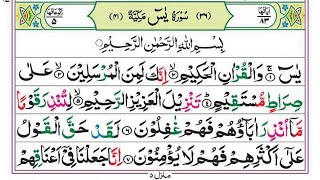 اٰیَاتُهَا ٨٣ (٣٦) سُوْرَةُ يٰسٓ مَكِّيَّةٌ (٤١) رُكُوْعَاتُهَا ٥
بِسْمِ اللّٰهِ الرَّحْمٰنِ الرَّحِيْمِ
يٰسٓ ۚ وَالْقُرْاٰنِ الْحَكِيْمِ ۙ اِنَّكَ لَمِنَ الْمُرْسَلِيْنَ ۙ عَلٰى
صِرَاطٍ مُّسْتَقِيْمٍ ؕ تَنْزِيْلَ الْعَزِيْزِ الرَّحِيْمِ ۙ لِتُنْذِرَ قَوْمًا
مَّاۤ اُنْذِرَ اٰبَآؤُهُمْ فَهُمْ غٰفِلُوْنَ لَقَدْ حَقَّ الْقَوْلُ
عَلٰۤى اَكْثَرِهِمْ فَهُمْ لَا يُؤْمِنُوْنَ اِنَّا جَعَلْنَا فِيْۤ اَعْنَاقِهِمْ
منزل ٥